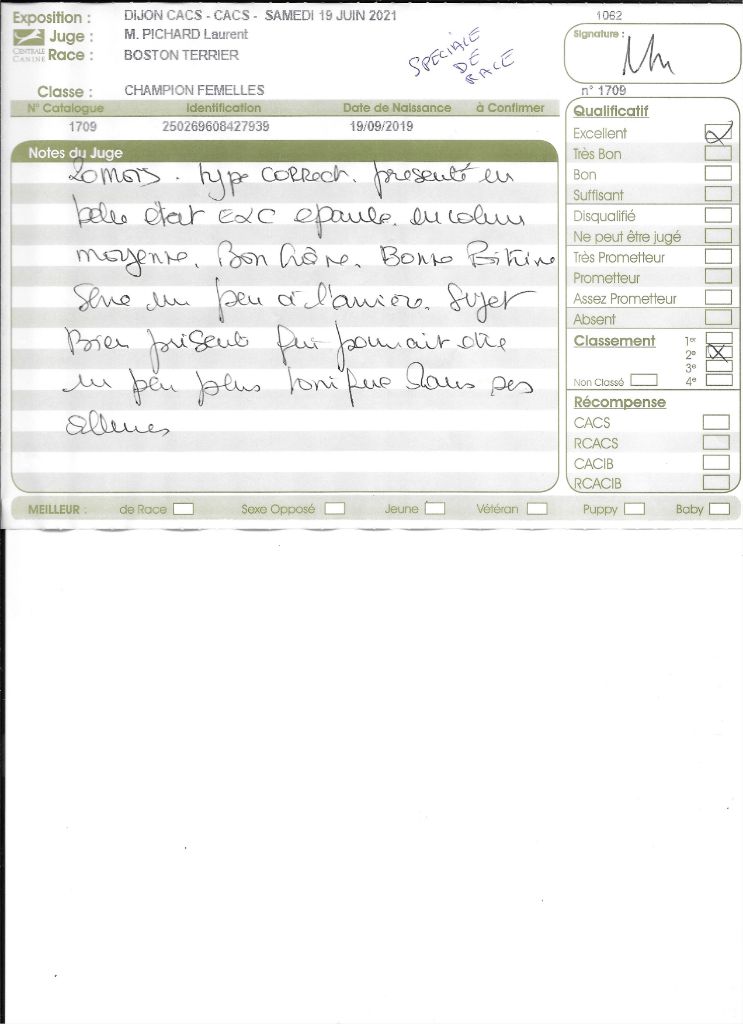 Exposition : DIJON CACS - CACS - SAMEDI 19 JUIN 2021
1062
Juge : M. PICHARD Laurent
CENTRALE CANINE
Race : BOSTON TERRIER
SPECIALE
DE
RACE
Signature :
Classe : CHAMPION FEMELLES
n° 1709
N° Catalogue Identification Date de Naissance à Confirmer
1709 250269608427939 19/09/2019
Notes du Juge
20 mois. type correct. présenté en
belle état EXC épaule. encolure
moyenne. Bon crâne. Bonne Poitrine
Serré un peu à l'arrière. Sujet
Bien présenté qui pourrait être
un peu plus tonique dans ses
allures
Qualificatif
Excellent X
Très Bon
Bon
Suffisant
Disqualifié
Ne peut être jugé
Très Prometteur
Prometteur
Assez Prometteur
Absent
Classement 1er
2e X
3e
Non Classé 4e
Récompense
CACS
RCACS
CACIB
RCACIB
MEILLEUR : de Race Sexe Opposé Jeune Vétéran Puppy Baby